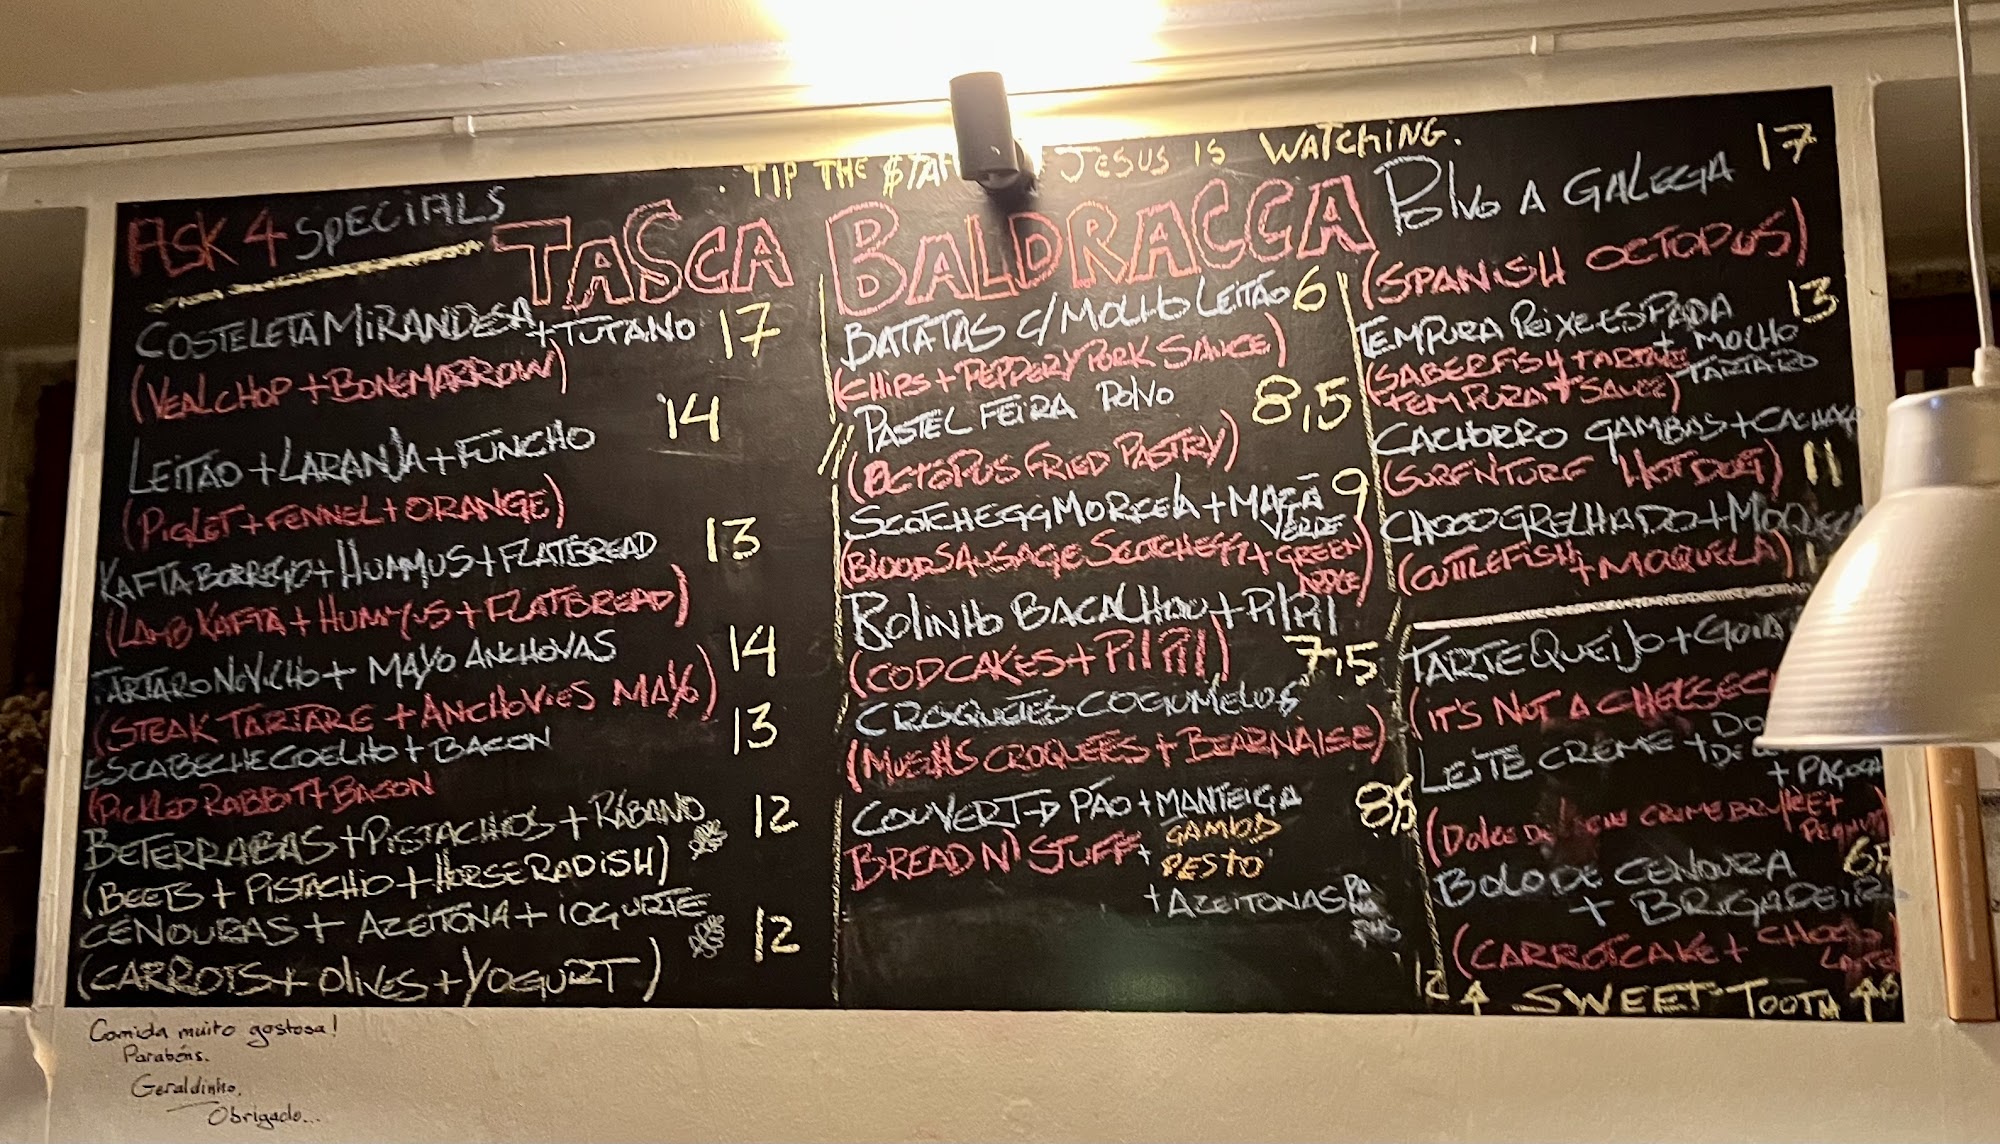 . TIP THE JESUS IS WATCHING.
ASK 4 SPECIALS
TASCA BALDRACCA
COSTELETA MIRANDESA + TUTANO 17
(VEAL CHOP + BONEMARROW)
LEITÃO + LARANJA + FUNCHO 14
(PIGLET + FENNEL + ORANGE)
KAFTA BORREGO + HUMMUS + FLATBREAD 13
(LAMB KAFTA + HUMMUS + FLATBREAD)
TARTARO NOVILHO + MAYO ANCHOVAS 14
(STEAK TARTARE + ANCHOVIES MAYO)
ESCABECHE COELHO + BACON 13
(PICKLED RABBIT + BACON
BETERRABAS + PISTACHIOS + RÁBANO 12
(BEETS + PISTACHIO + HORSERADISH)
CENOURAS + AZEITONA + IOGURTE 12
(CARROTS + OLIVES + YOGURT)
BATATAS C/ MOLHO LEITÃO 6
(CHIPS + PEPPERY PORK SAUCE)
PASTEL FEIRA POLVO 8,5
(OCTOPUS FRIED PASTRY)
SCOTCHEGG MORCELA + MAÇÃ 9
VERDE
(BLOOD SAUSAGE SCOTCHEGG + GREEN
APPLE)
BOLINHO BACALHAU + PILPIL
(CODCAKES + PILPIL) 7,5
CROQUETES COGUMELOS
(MUSHLS CROQUEES + BEARNAISE)
COUVERT PÃO + MANTEIGA 8,5
BREAD N' STUFF +
PESTO
+ AZEITONAS
POLVO A GALEGA 17
(SPANISH OCTOPUS)
TEMPURA PEIXE ESPADA 13
+ MOLHO
TARTARO
(SABERFISH TARTAR
TEMPURA + SAUCE)
CACHORRO GAMBAS +
(SURFNTURF HOT DOG) 11
CHOCO GRELHADO +
(CUTTLEFISH + MOQUECA)
TARTE QUEIJO +
(IT'S NOT A
LEITE CREME +
+
(DOLCE CREME BRULÉE +
BOLO DE CENOURA
+ BRIGADEIRO
(CARROTCAKE +
SWEET TOOTH
Comida muito gostosa!
Parabéns.
Geraldinho.
Obrigado...